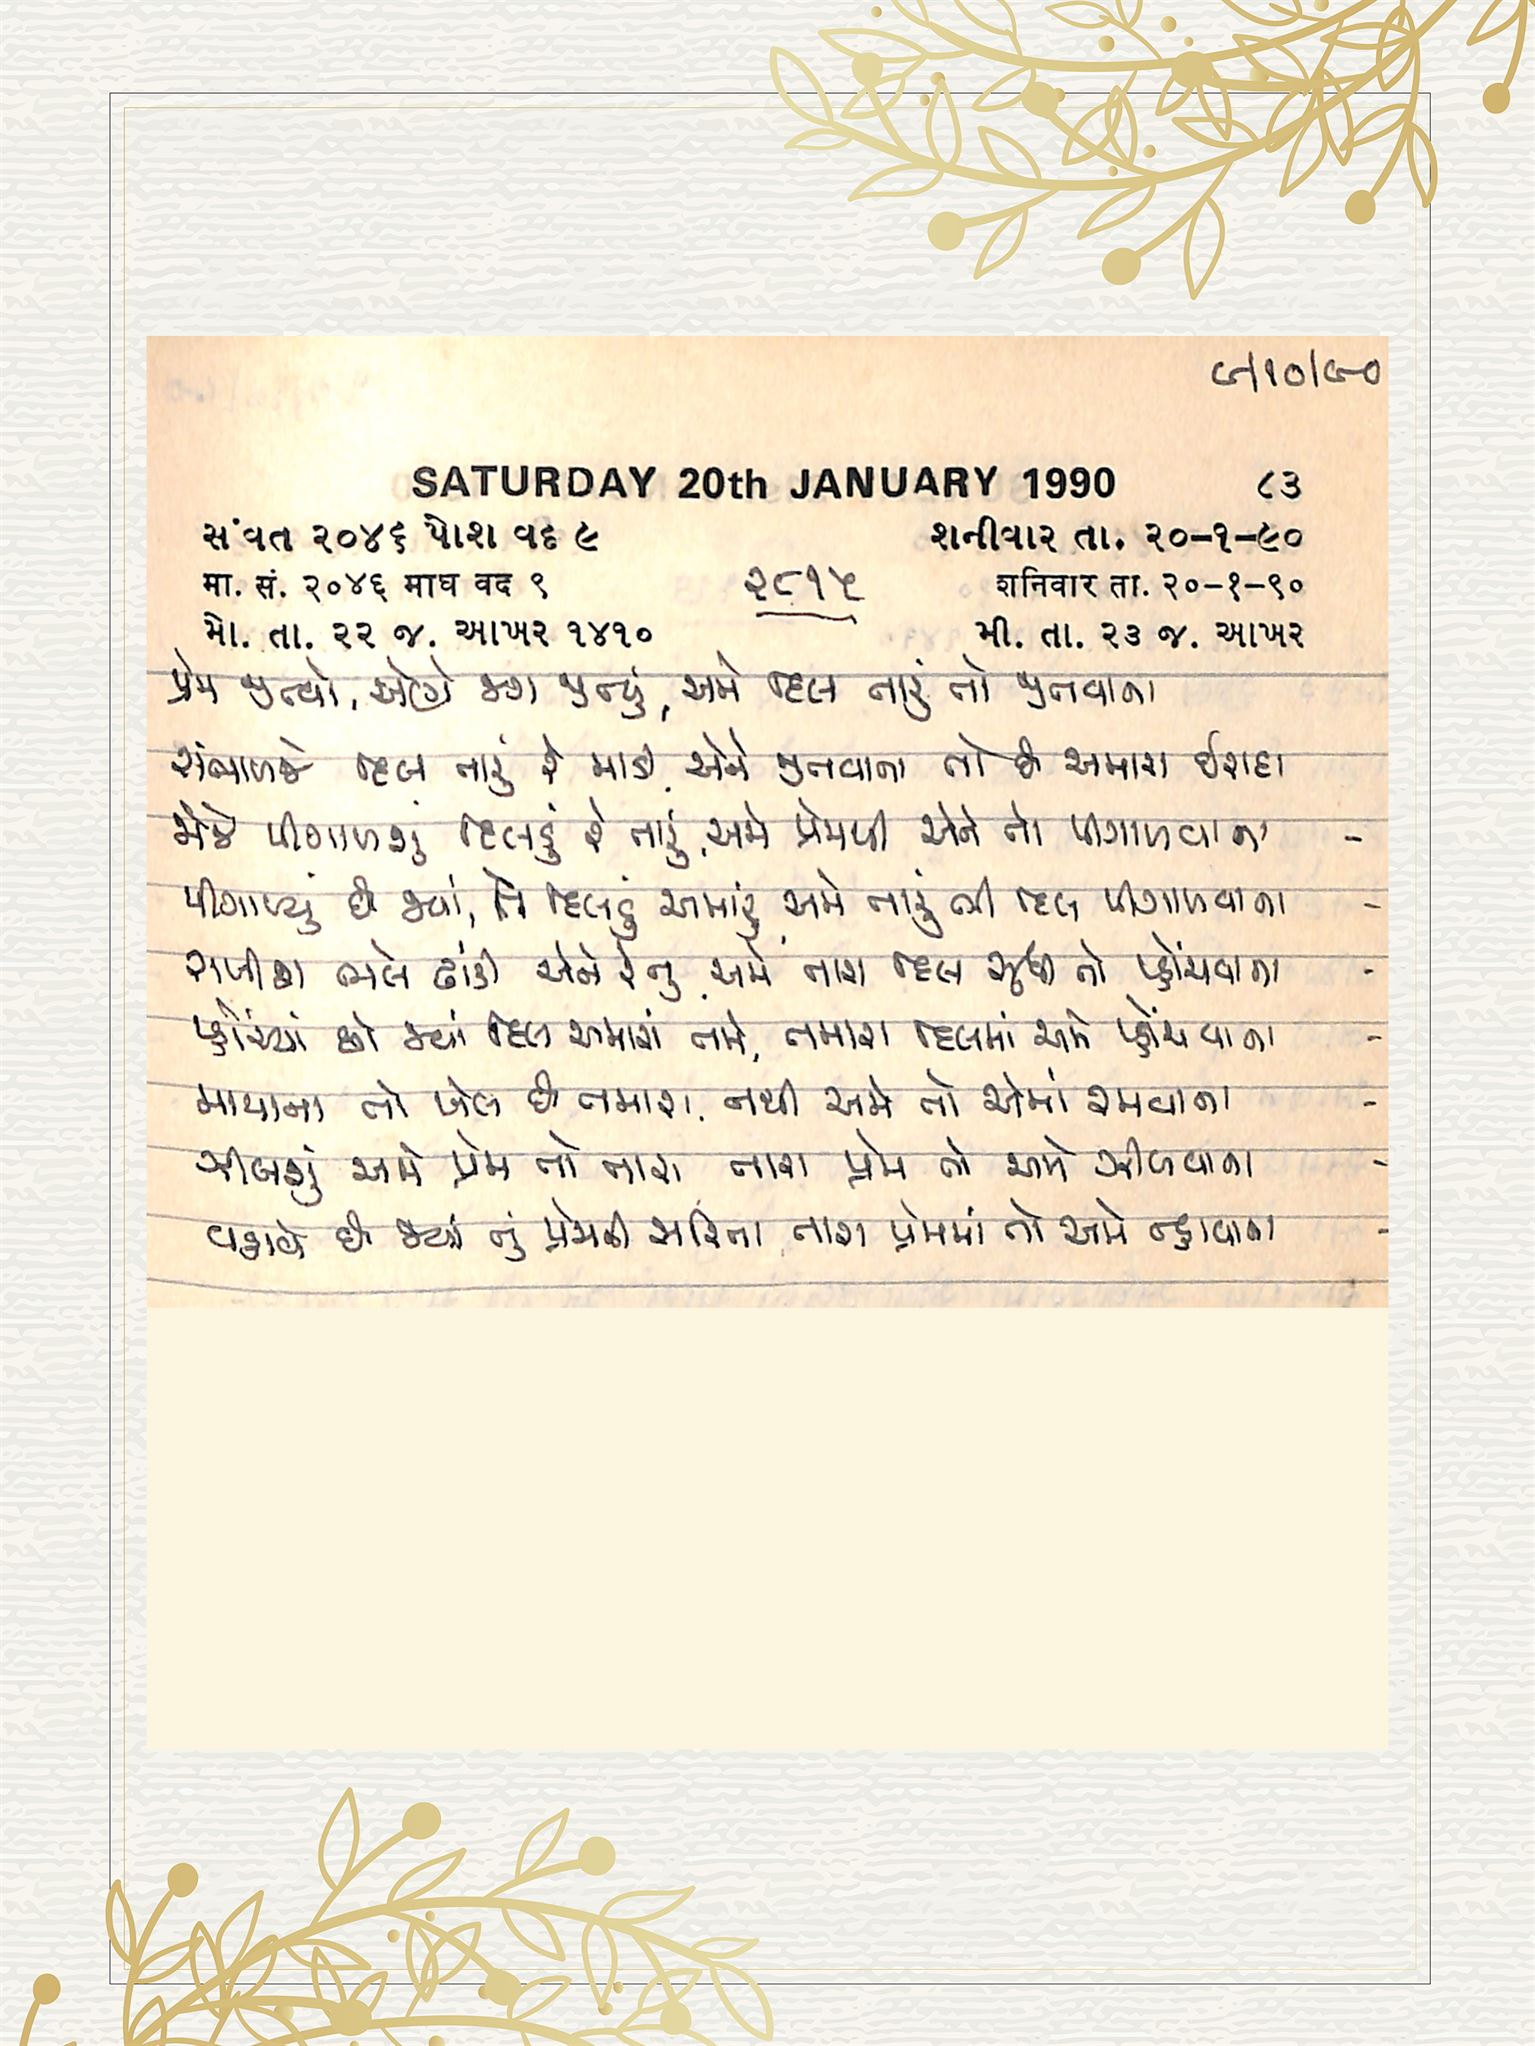 ૯/૧૦/૯૦
SATURDAY 20th JANUARY 1990 ૮૩
સંવત ૨૦૪૬ પોશ વદ ૯ શનીવાર તા. ૨૦-૧-૯૦
मा. सं. २०४६ माघ वद ९ ૨૮૧૫ शनिवार ता. २०-१-९०
મો. તા. ૨૨ જ. આખર ૧૪૧૦ મી. તા. ૨૩ જ. આખર
પ્રેમ જીત્યો, એણે જગ જીત્યું, અમે દિલ તારું તો જીતવાના
સંભાળજે દિલ તારું રે માડી, એને જીતવાના તો છે અમારા ઈરાદા
પીગાળશું દિલડું રે તારું, અમે પ્રેમથી એને તો પીગાળવાના -
પીગાળ્યું છે જ્યાં, તેં દિલડું અમારું, અમે તારું ભી દિલ પીગાળવાના -
ભલે ઢાંકી એને રે તુ, અમે તારા દિલ સુધી તો પ્હોંચવાના -
પ્હોંચ્યાં છો જ્યાં દિલ અમારાં તમે, તમારા દિલમાં અમે પ્હોંચવાના -
માયાના તો ખેલ છે તમારા, નથી અમે તો એમાં રમવાના -
ઝીલશું અમે પ્રેમ તો તારા તારા પ્રેમ તો અમે ઝીલવાના -
વહાવે છે જ્યાં તું પ્રેમની સરિતા, તારા પ્રેમમાં તો અમે ન્હાવાના -